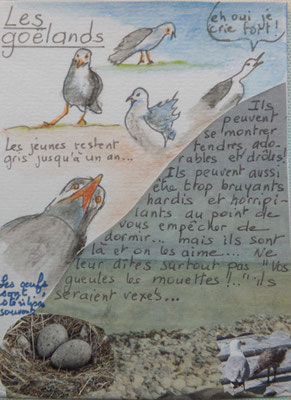 Les
goëlands
eh oui je
crie fort!
Les jeunes restent
gris jusqu'à un an...
Ils
peuvent
se montrer
tendres, ado-
rables et drôles!
Ils peuvent aussi
être trop bruyants
hardis et horripi-
lants au point de
vous empêcher de
dormir... mais ils sont
là et on les aime.... Ne
leur dites surtout pas "Vos
gueules les mouettes!.." ils
seraient vexés...
Les œufs
sont
stérilisés
souvent